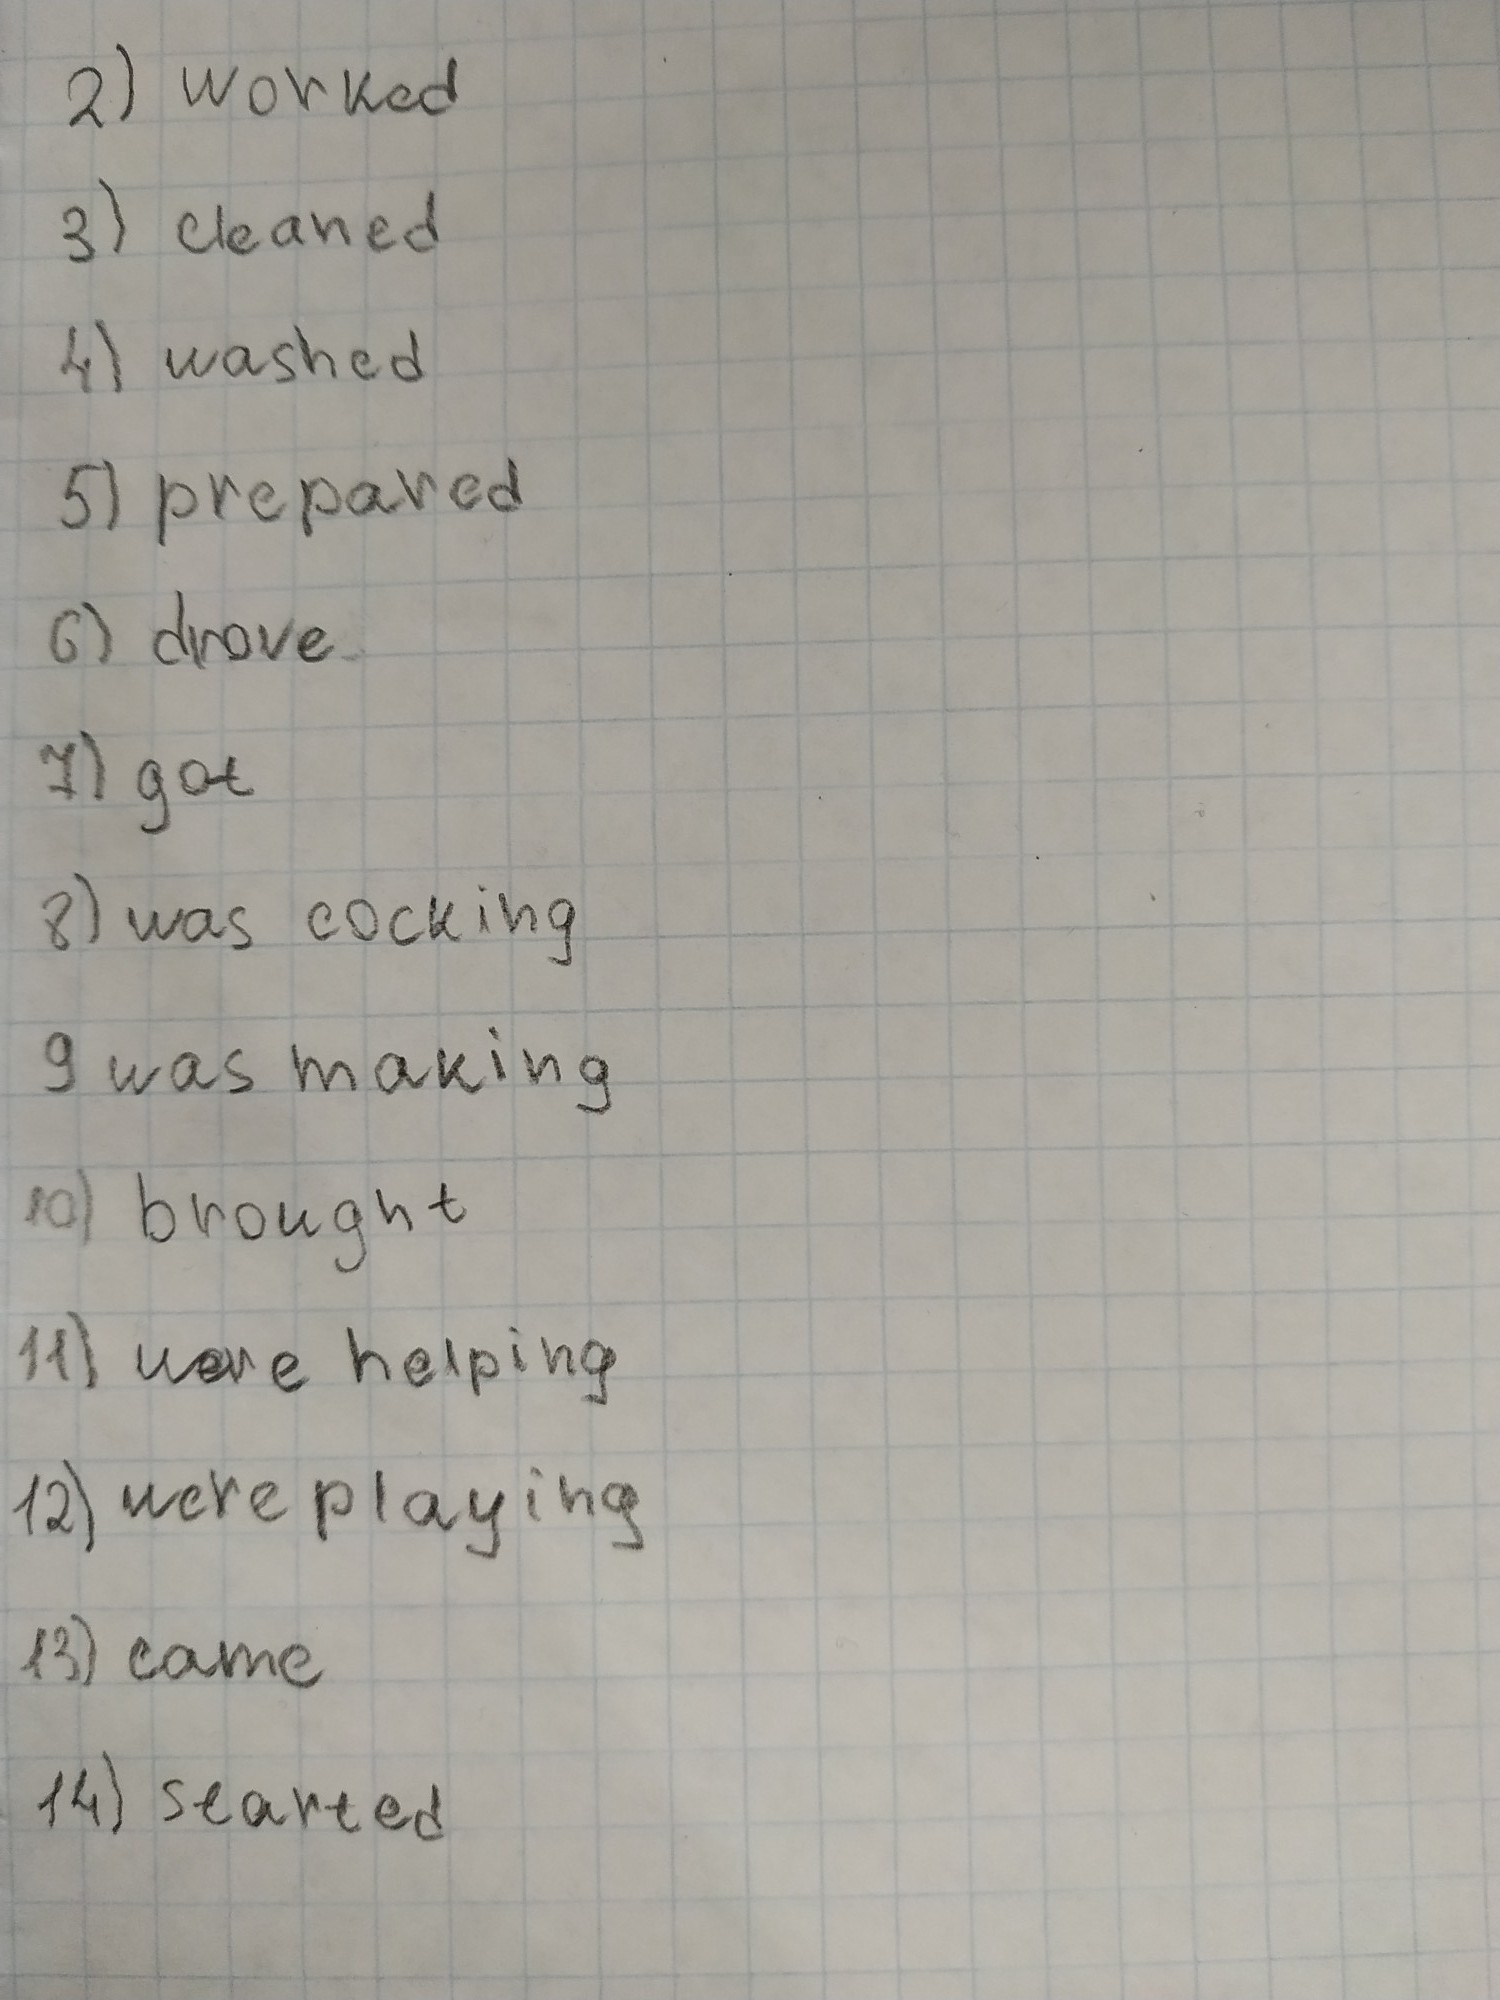 2) worked
3) cleaned
4) washed
5) prepared
6) drove
7) got
8) was cocking
9 was making
10) brought
11) were helping
12) were playing
13) came
14) started